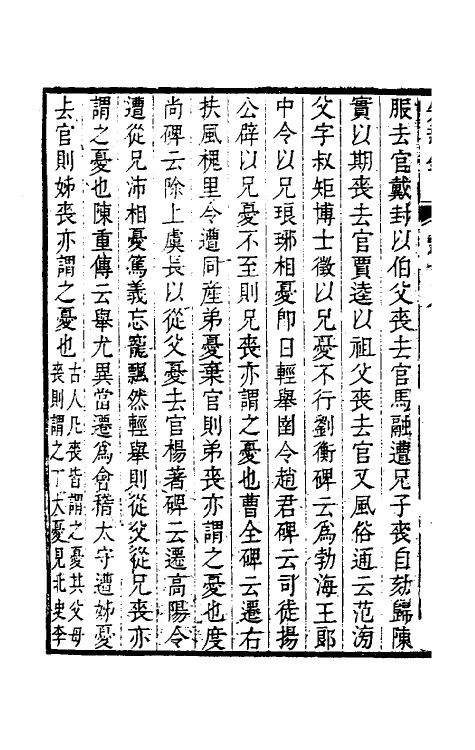 服去官戴封以伯父喪去官馬融遭兄子喪自劾歸陳
實以期喪去官賈逵以祖父喪去官又風俗通云范滂
父字叔矩博士徵以兄憂不行劉衡碑云為勃海王郎
中令以兄琅琊相憂即日輕舉圉令趙君碑云司徒揚
公辟以兄憂不至則兄喪亦謂之憂也曹全碑云遷右
扶風槐里令遭同産弟憂棄官則弟喪亦謂之憂也度
尚碑云除上虞長以從父憂去官楊著碑云遷高陽令
遭從兄沛相憂篤義忘寵飄然輕舉則從父從兄喪亦
謂之憂也陳重傳云舉尤異當遷爲會稽太守遭姊憂
去官則姊喪亦謂之憂也古人凡喪皆謂之憂其父母
喪則謂之丁大憂見北史李